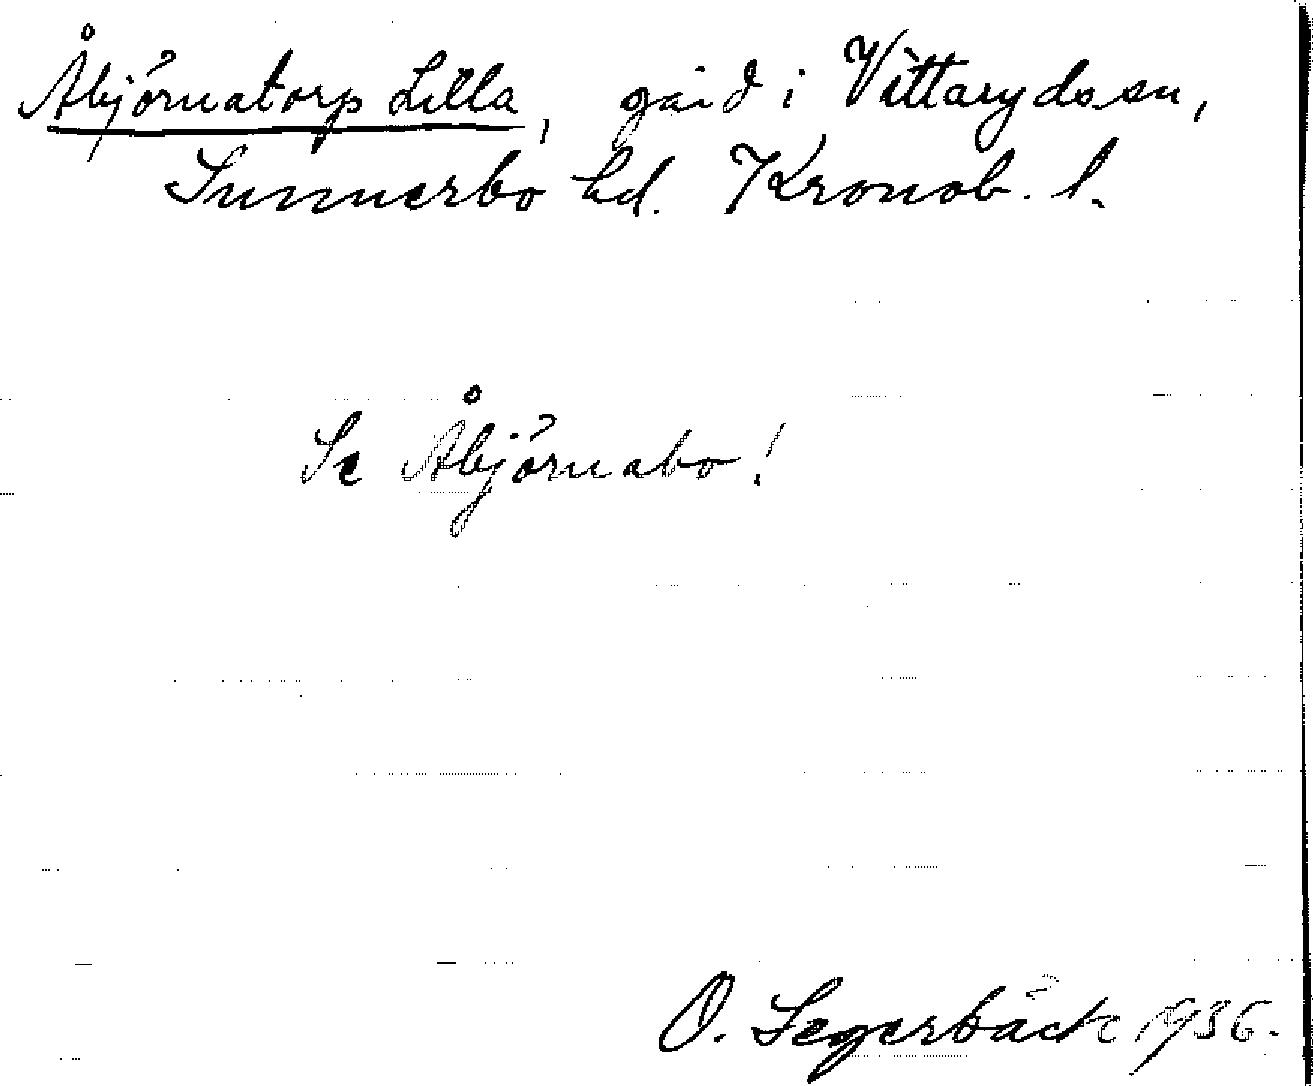 Åbjörnatorp Lilla, gård i Vittaryds sn,
Sunnerbo hd. Kronob. l.
Se Åbjörnabo!
O. Segerbäck 1936.